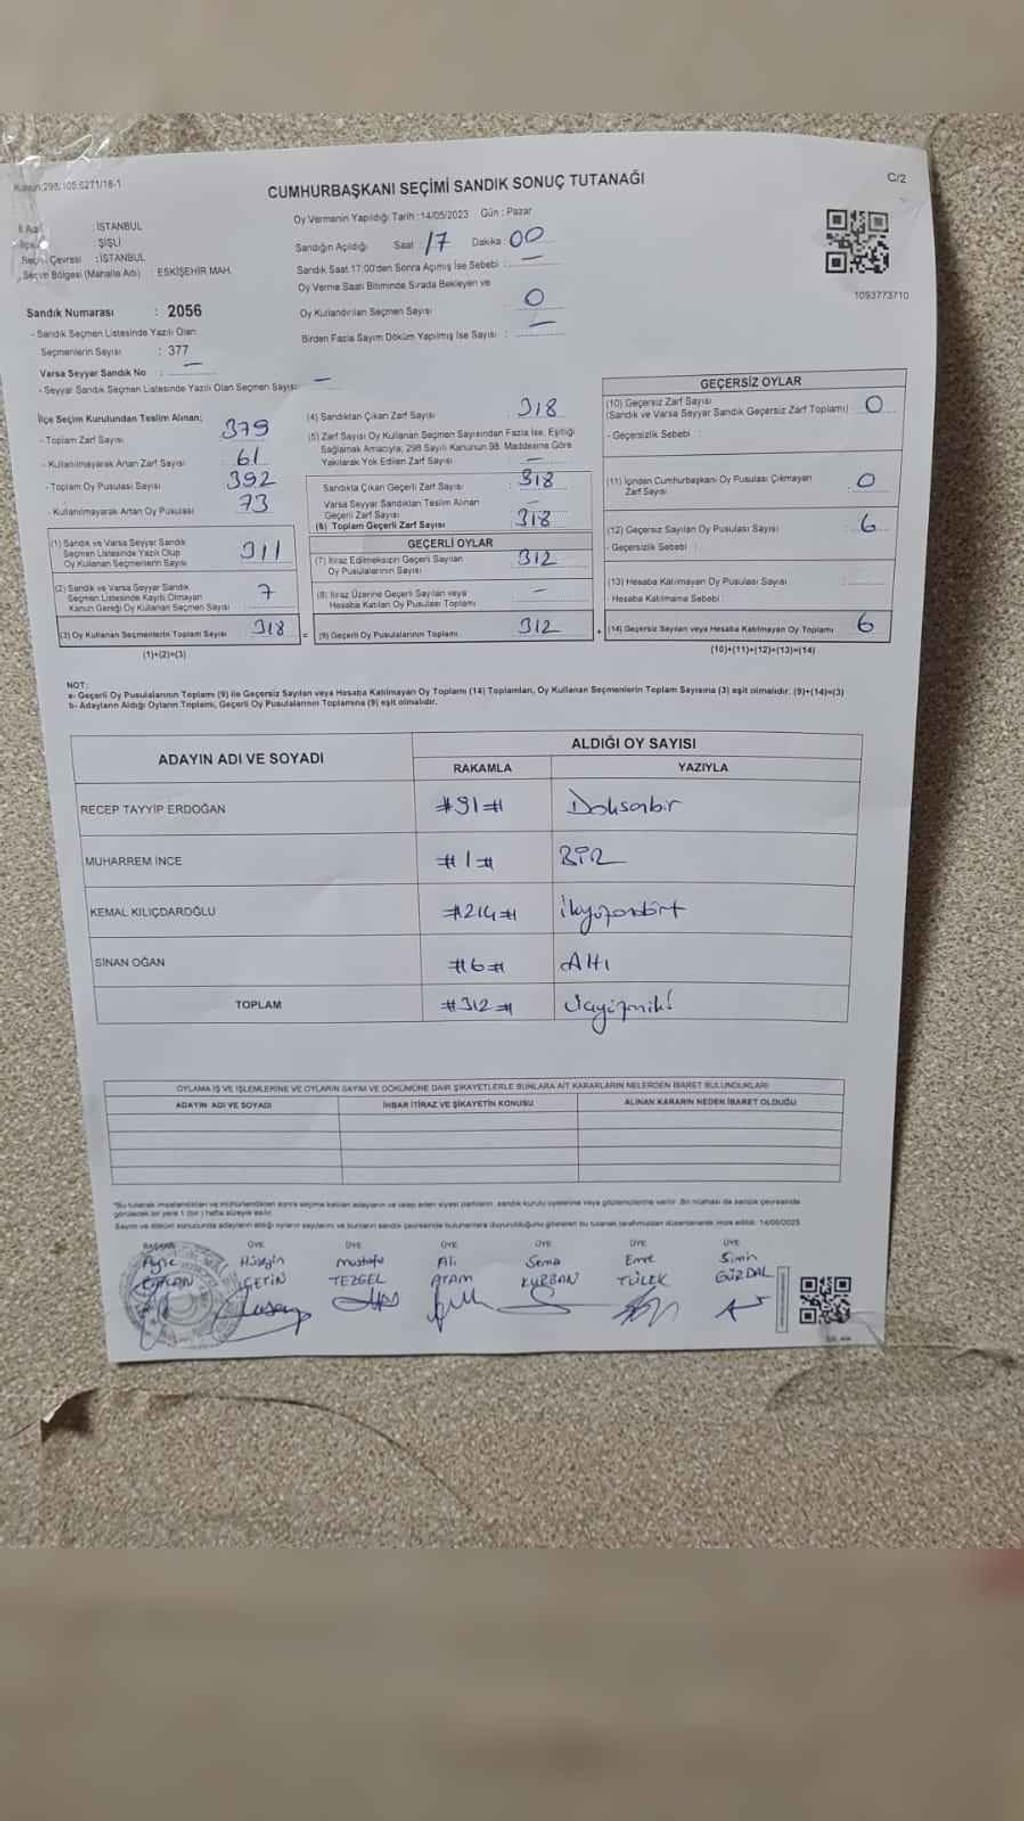 Kanun:298/105.6271/18-1
C/2
CUMHURBAŞKANI SEÇİMİ SANDIK SONUÇ TUTANAĞI
Oy Vermenin Yapıldığı Tarih :14/05/2023 Gün : Pazar
İl Adı : İSTANBUL
İlçe : ŞİŞLİ
Seçim Çevresi : İSTANBUL
Seçim Bölgesi (Mahalle Adı) ESKİŞEHİR MAH.
Sandığın Açıldığı Saat 17 Dakika 00
Sandık Saat 17:00'den Sonra Açılmış İse Sebebi : —
Oy Verme Saati Bitiminde Sırada Bekleyen ve
Oy Kullandırılan Seçmen Sayısı 0
Birden Fazla Sayım Döküm Yapılmış İse Sayısı : —
1093773710
Sandık Numarası : 2056
- Sandık Seçmen Listesinde Yazılı Olan
Seçmenlerin Sayısı : 377
Varsa Seyyar Sandık No : —
- Seyyar Sandık Seçmen Listesinde Yazılı Olan Seçmen Sayısı: —
İlçe Seçim Kurulundan Teslim Alınan;
- Toplam Zarf Sayısı 379
- Kullanılmayarak Artan Zarf Sayısı 61
- Toplam Oy Pusulası Sayısı 392
- Kullanılmayarak Artan Oy Pusulası 73
(1) Sandık ve Varsa Seyyar Sandık
Seçmen Listesinde Yazılı Olup
Oy Kullanan Seçmenlerin Sayısı 311
(2) Sandık ve Varsa Seyyar Sandık
Seçmen Listesinde Kayıtlı Olmayan
Kanun Gereği Oy Kullanan Seçmen Sayısı 7
(3) Oy Kullanan Seçmenlerin Toplam Sayısı 318
(1)+(2)=(3)
(4) Sandıktan Çıkan Zarf Sayısı 318
(5) Zarf Sayısı Oy Kullanan Seçmen Sayısından Fazla İse, Eşitliği
Sağlamak Amacıyla, 298 Sayılı Kanunun 98. Maddesine Göre
Yakılarak Yok Edilen Zarf Sayısı —
Sandıkta Çıkan Geçerli Zarf Sayısı : 318
Varsa Seyyar Sandıktan Teslim Alınan
Geçerli Zarf Sayısı —
(6) Toplam Geçerli Zarf Sayısı 318
GEÇERLİ OYLAR
(7) İtiraz Edilmeksizin Geçerli Sayılan
Oy Pusulalarının Sayısı 312
(8) İtiraz Üzerine Geçerli Sayılan veya
Hesaba Katılan Oy Pusulası Toplamı —
= (9) Geçerli Oy Pusulalarının Toplamı 312
GEÇERSİZ OYLAR
(10) Geçersiz Zarf Sayısı
(Sandık ve Varsa Seyyar Sandık Geçersiz Zarf Toplamı) 0
- Geçersizlik Sebebi :
(11) İçinden Cumhurbaşkanı Oy Pusulası Çıkmayan
Zarf Sayısı : 0
(12) Geçersiz Sayılan Oy Pusulası Sayısı : 6
- Geçersizlik Sebebi :
(13) Hesaba Katılmayan Oy Pusulası Sayısı
Hesaba Katılmama Sebebi :
+ (14) Geçersiz Sayılan veya Hesaba Katılmayan Oy Toplamı 6
(10)+(11)+(12)+(13)=(14)
NOT:
a- Geçerli Oy Pusulalarının Toplamı (9) ile Geçersiz Sayılan veya Hesaba Katılmayan Oy Toplamı (14) Toplamları, Oy Kullanan Seçmenlerin Toplam Sayısına (3) eşit olmalıdır. (9)+(14)=(3)
b- Adayların Aldığı Oyların Toplamı, Geçerli Oy Pusulalarının Toplamına (9) eşit olmalıdır.
ADAYIN ADI VE SOYADI ALDIĞI OY SAYISI
RAKAMLA YAZIYLA
RECEP TAYYİP ERDOĞAN #91# Doksanbir
MUHARREM İNCE #1# BİR
KEMAL KILIÇDAROĞLU #214# İkiyüzondört
SİNAN OĞAN #6# Altı
TOPLAM #312# Üçyüzoniki
OYLAMA İŞ VE İŞLEMLERİNE VE OYLARIN SAYIM VE DÖKÜMÜNE DAİR ŞİKAYETLERLE BUNLARA AİT KARARLARIN NELERDEN İBARET BULUNDUKLARI
ADAYIN ADI VE SOYADI İHBAR İTİRAZ VE ŞİKAYETİN KONUSU ALINAN KARARIN NEDEN İBARET OLDUĞU
BAŞKAN ÜYE ÜYE ÜYE ÜYE ÜYE ÜYE
Ayşe Hüseyin Mustafa Ali Sema Emre
ÇETİN TEZGEL KURBAN TÜLEK GÜRDAL